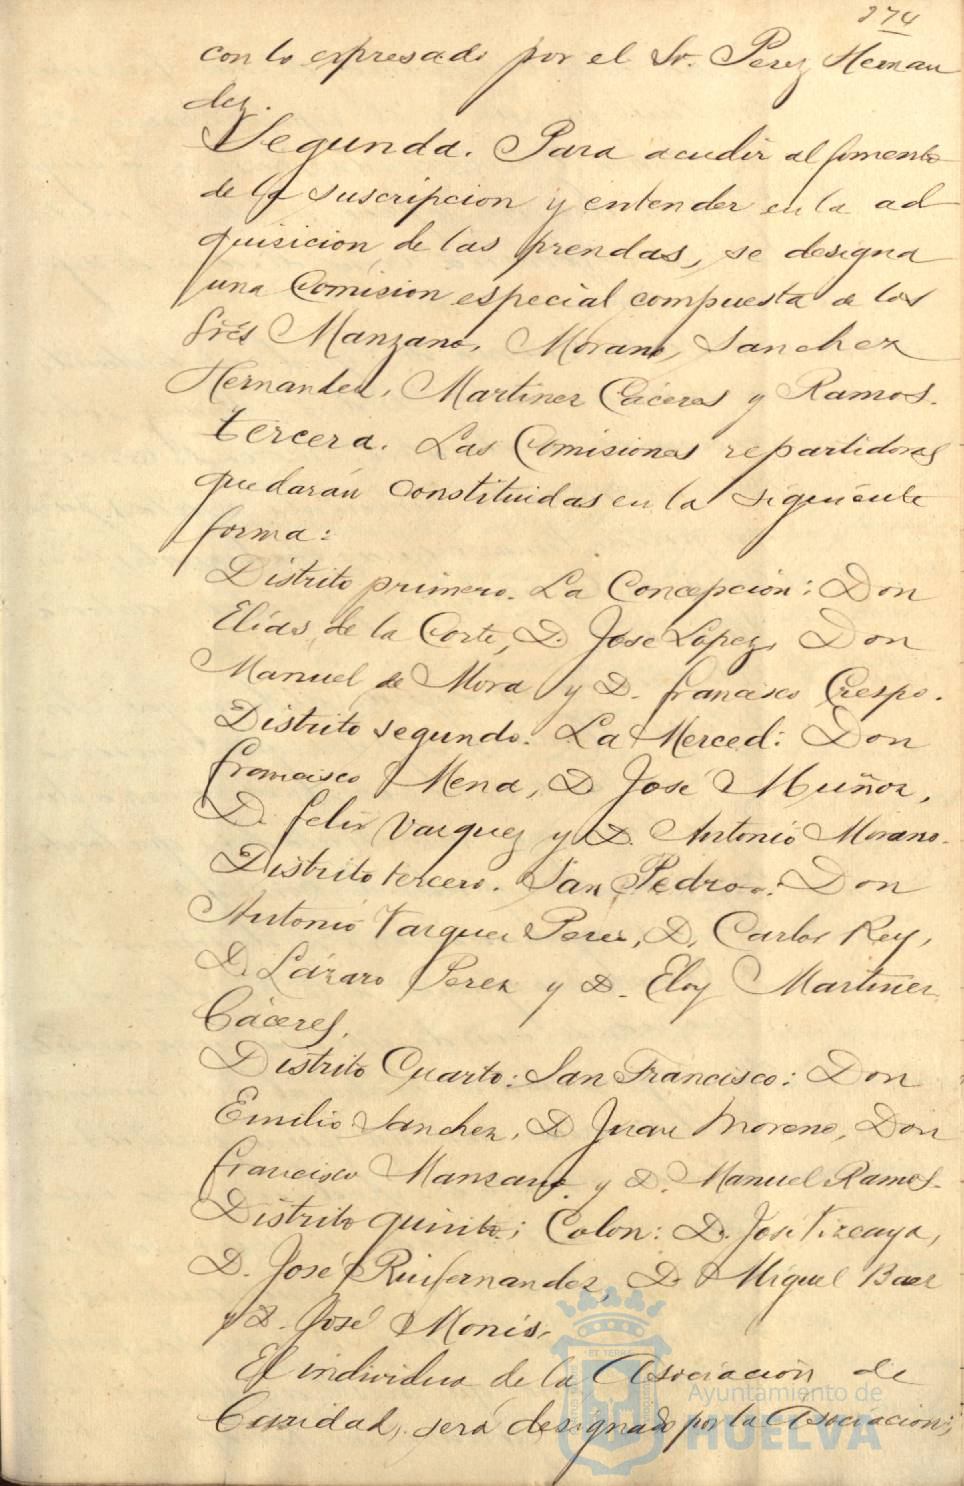 274
con lo expresado por el Sr. Perez Hernan
dez.
Segunda. Para acudir al fomento
de la suscripcion y entender en la ad
quisicion de las prendas, se designa
una Comision especial compuesta de los
Srés Manzano, Morano, Sanchez
Hernandez, Martinez Cáceres y Ramos.
tercera. Las Comisiones repartidoras
quedarán constituidas en la siguiente
forma:
Distrito primero. La Concepcion: Don
Elías de la Corte, D. Jose Lopez, Don
Manuel de Mora y D. Francisco Crespo.
Distrito segundo. La Merced: Don
Francisco Mena, D. José Muñoz,
D. Felix Vazquez y D. Antonio Morano.
Distrito tercero. San Pedro: Don
Antonio Vazquez Perez, D. Carlos Rey,
D. Lázaro Perez y D. Eloy Martinez
Cáceres.
Distrito Cuarto: San Francisco: Don
Emilio Sanchez, D. Juan Moreno, Don
Francisco Manzano y D. Manuel Ramos.
Distrito quinto; Colon: D. José Vizcaya,
D. José Ruifernandez, D. Miguel Baez
y D. José Monis.
El individuo de la Asociacion de
Caridad, será designado por la Asociacion;
Ayuntamiento de
HUELVA